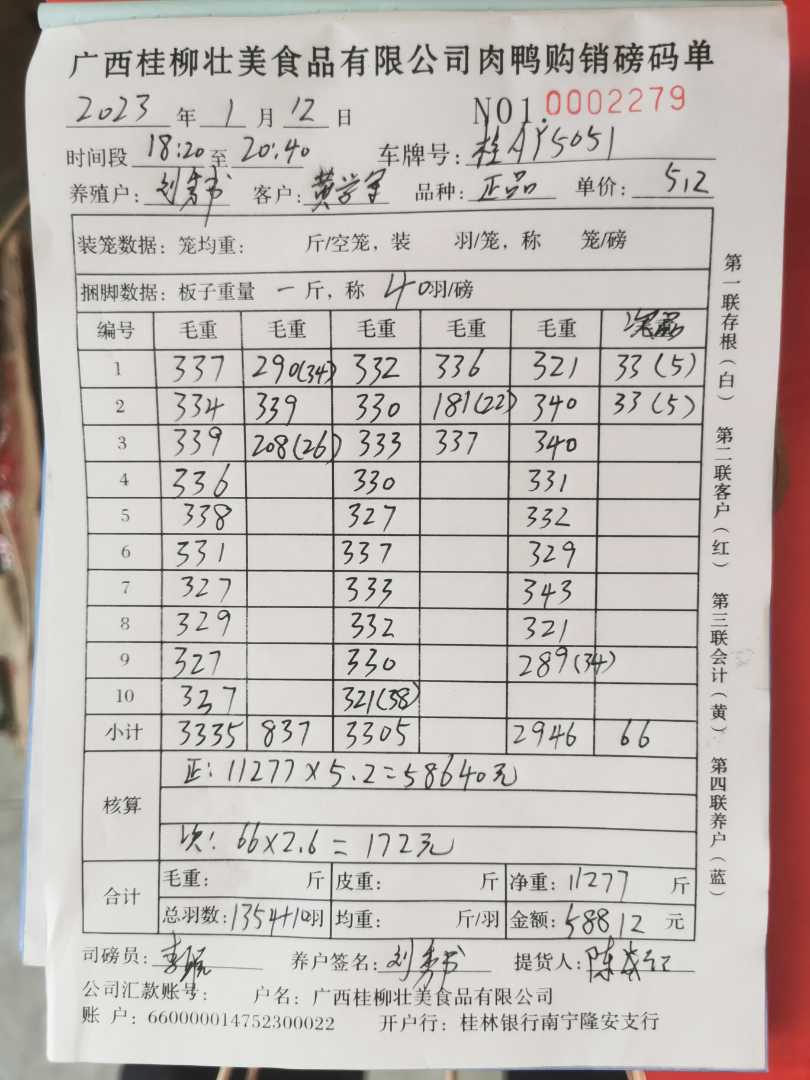 广西桂柳壮美食品有限公司肉鸭购销磅码单
2023 年 1 月 12 日 NO1.0002279
时间段 18:20 至 20:40 车牌号: 桂AY5051
养殖户: 刘 客户: 黄 品种: 正品 单价: 5.2
装笼数据: 笼均重: 斤/空笼, 装 羽/笼, 称 笼/磅
捆脚数据: 板子重量 一 斤, 称 40羽/磅
编号 毛重 毛重 毛重 毛重 毛重 次品
1 337 290(34) 332 336 321 33(5)
2 334 339 330 181(22) 340 33(5)
3 339 208(26) 333 337 340
4 336 330 331
5 338 327 332
6 331 337 329
7 327 333 343
8 329 332 321
9 327 330 289(34)
10 337 321(38)
小计 3335 837 3305 2946 66
核算
正: 11277×5.2=58640元
次: 66×2.6=172元
合计
毛重: 斤 皮重: 斤 净重: 11277 斤
总羽数: 1354+10羽 均重: 斤/羽 金额: 58812 元
司磅员: 李 养户签名: 刘 提货人: 陈
公司汇款账号: 户名: 广西桂柳壮美食品有限公司
账 户: 660000014752300022 开户行: 桂林银行南宁隆安支行
第一联存根(白) 第二联客户(红) 第三联会计(黄) 第四联养户(蓝)